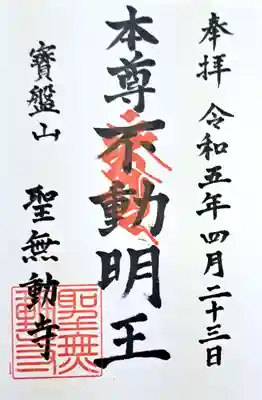 奉拝 令和五年四月二十三日
本尊 不動明王
寶盤山 聖無動寺